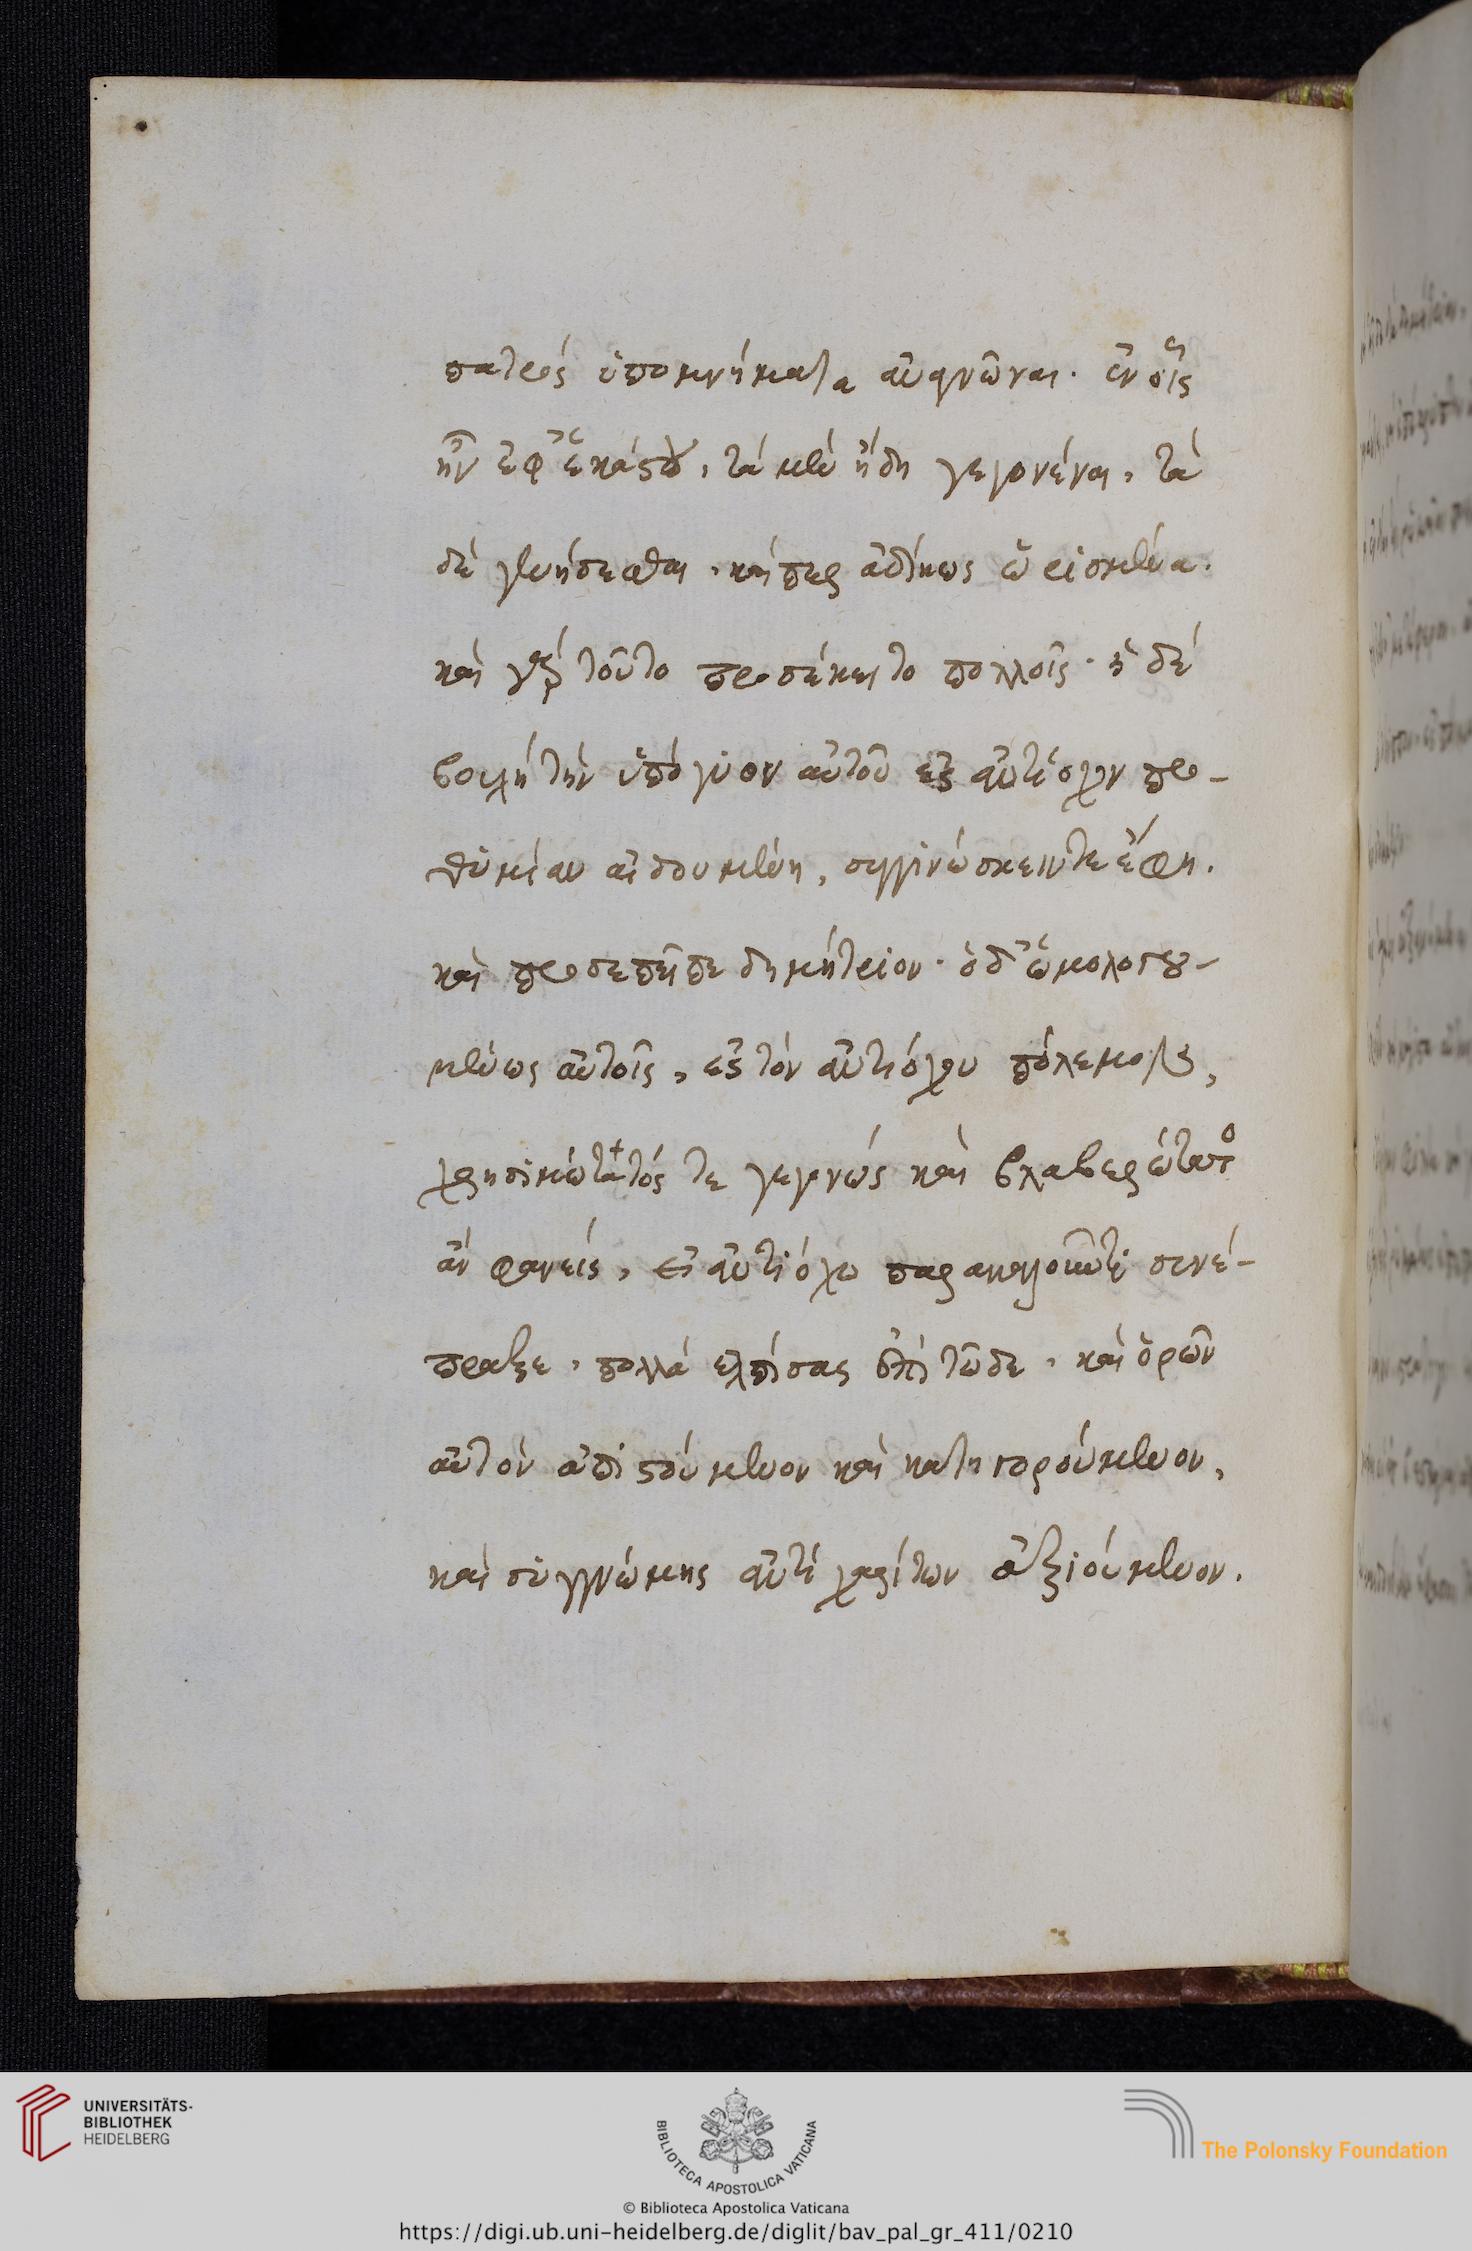 πατρός ὑπομνήματα ἀναγνῶναι. ἐν οἷς
ἦν ἐφ' ἑκάστου, τά μὲν ἤδη γεγονέναι, τὰ
δέ γενήσεσθαι, καί περ ἀδίκως ὡρισμένα.
καὶ γάρ τοῦτο προσέκειτο πολλοῖς. ἡ δέ
βουλή τὴν ὑπόγυον αὐτοῦ ἐς ἀντίοχον προ-
θυμίαν αἰδουμένη, συγγινώσκειν τε ἔφη.
καὶ προσεπεῖπε δημήτριον. ὁ δ' ὡμολογου-
μένως αὐτοῖς, ἐς τόν ἀντιόχου πόλεμον,
χρησιμώτατός τε γεγονώς καὶ βλαβερώτατος
ἄν φανείς, εἰ ἀντιόχῳ παρακαλοῦντι συνέ-
πραξε, πολλά ἐλπίσας ἐπὶ τῷδε, καὶ ὁρῶν
αὐτὸν ἀπιστούμενον καὶ κατηγορούμενον,
καὶ συγγνώμης ἀντί χαρίτων ἀξιούμενον.
UNIVERSITÄTS-
BIBLIOTHEK
HEIDELBERG
BIBLIOTECA APOSTOLICA VATICANA
The Polonsky Foundation
© Biblioteca Apostolica Vaticana
https://digi.ub.uni-heidelberg.de/diglit/bav_pal_gr_411/0210